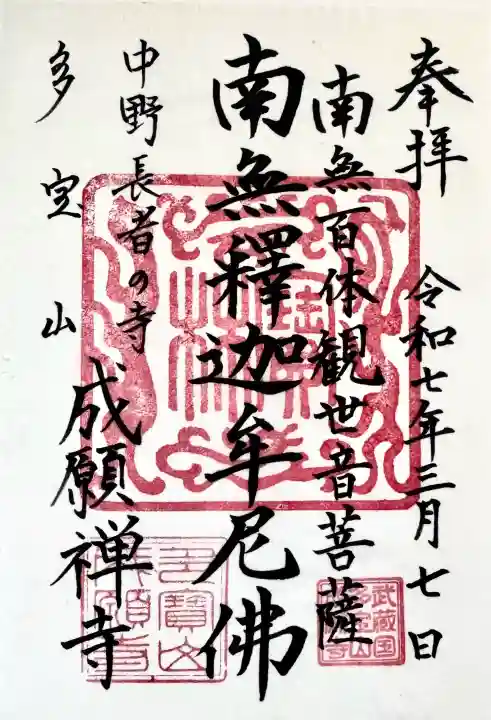 奉拝 令和七年三月七日
南無百体観世音菩薩
南無釋迦牟尼佛
中野長者の寺
多宝山 成願禅寺
武蔵国